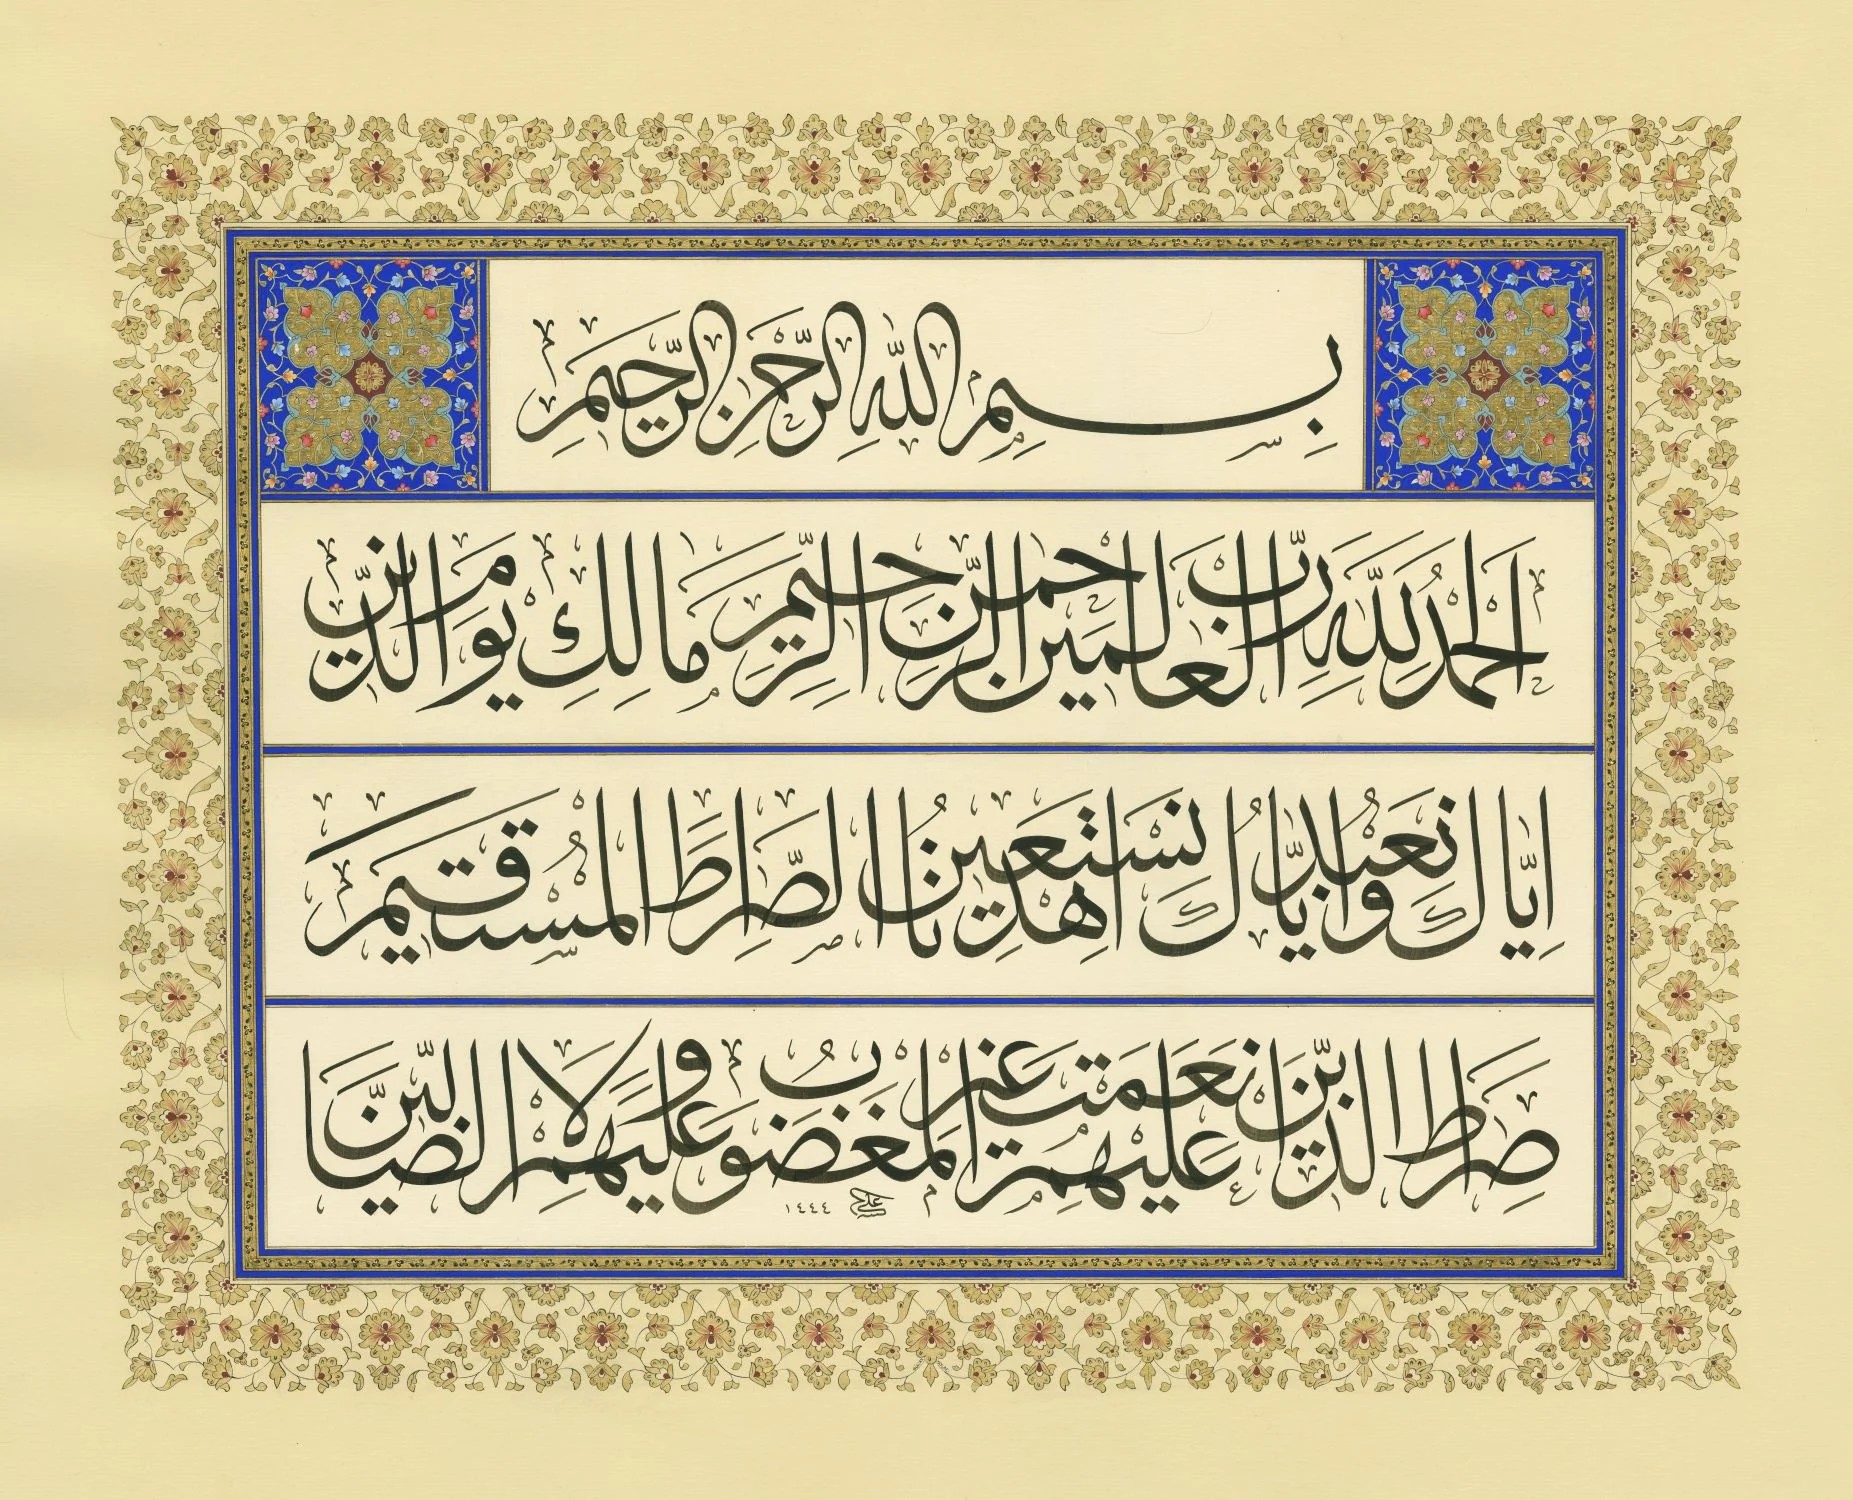 بِسْمِ اللّٰهِ الرَّحْمٰنِ الرَّحِيمِ
اَلْحَمْدُ لِلّٰهِ رَبِّ الْعَالَمِينَ الرَّحْمٰنِ الرَّحِيمِ مَالِكِ يَوْمِ الدِّينِ
اِيَّاكَ نَعْبُدُ وَاِيَّاكَ نَسْتَعِينُ اِهْدِنَا الصِّرَاطَ الْمُسْتَقِيمَ
صِرَاطَ الَّذِينَ اَنْعَمْتَ عَلَيْهِمْ غَيْرِ الْمَغْضُوبِ عَلَيْهِمْ وَلَا الضَّالِّينَ
علي ١٤٤٤